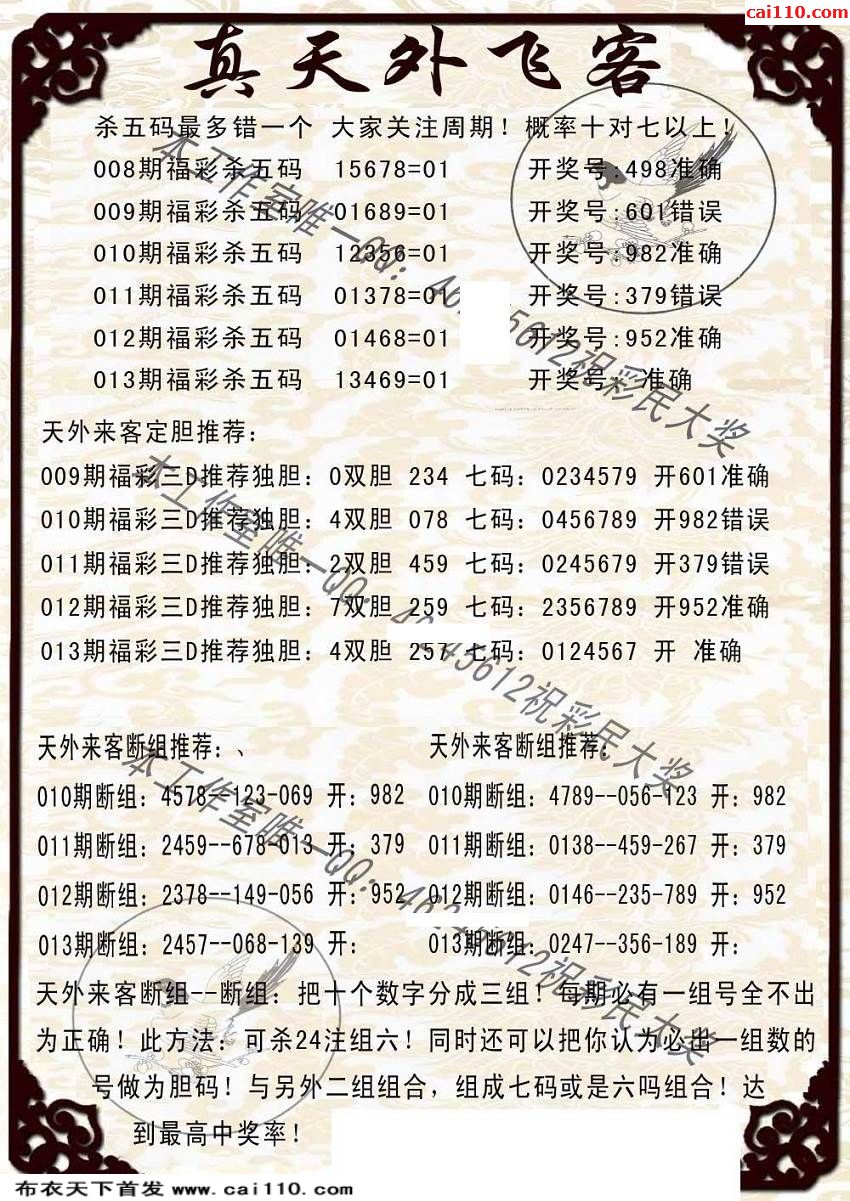 cai110.com
真天外飞客
杀五码最多错一个 大家关注周期！概率十对七以上！
008期福彩杀五码 15678=01 开奖号:498准确
009期福彩杀五码 01689=01 开奖号:601错误
010期福彩杀五码 12356=01 开奖号:982准确
011期福彩杀五码 01378=01 开奖号:379错误
012期福彩杀五码 01468=01 开奖号:952准确
013期福彩杀五码 13469=01 开奖号: 准确
天外来客定胆推荐：
009期福彩三D推荐独胆：0双胆 234 七码：0234579 开601准确
010期福彩三D推荐独胆：4双胆 078 七码：0456789 开982错误
011期福彩三D推荐独胆：2双胆 459 七码：0245679 开379错误
012期福彩三D推荐独胆：7双胆 259 七码：2356789 开952准确
013期福彩三D推荐独胆：4双胆 257 七码：0124567 开 准确
天外来客断组推荐：、 天外来客断组推荐：
010期断组：4578--123-069 开：982 010期断组：4789--056-123 开：982
011期断组：2459--678-013 开：379 011期断组：0138--459-267 开：379
012期断组：2378--149-056 开：952 012期断组：0146--235-789 开：952
013期断组：2457--068-139 开： 013期断组：0247--356-189 开：
天外来客断组--断组：把十个数字分成三组！每期必有一组号全不出
为正确！此方法：可杀24注组六！同时还可以把你认为必出一组数的
号做为胆码！与另外二组组合，组成七码或是六吗组合！达
到最高中奖率！
布衣天下首发 www.cai110.com